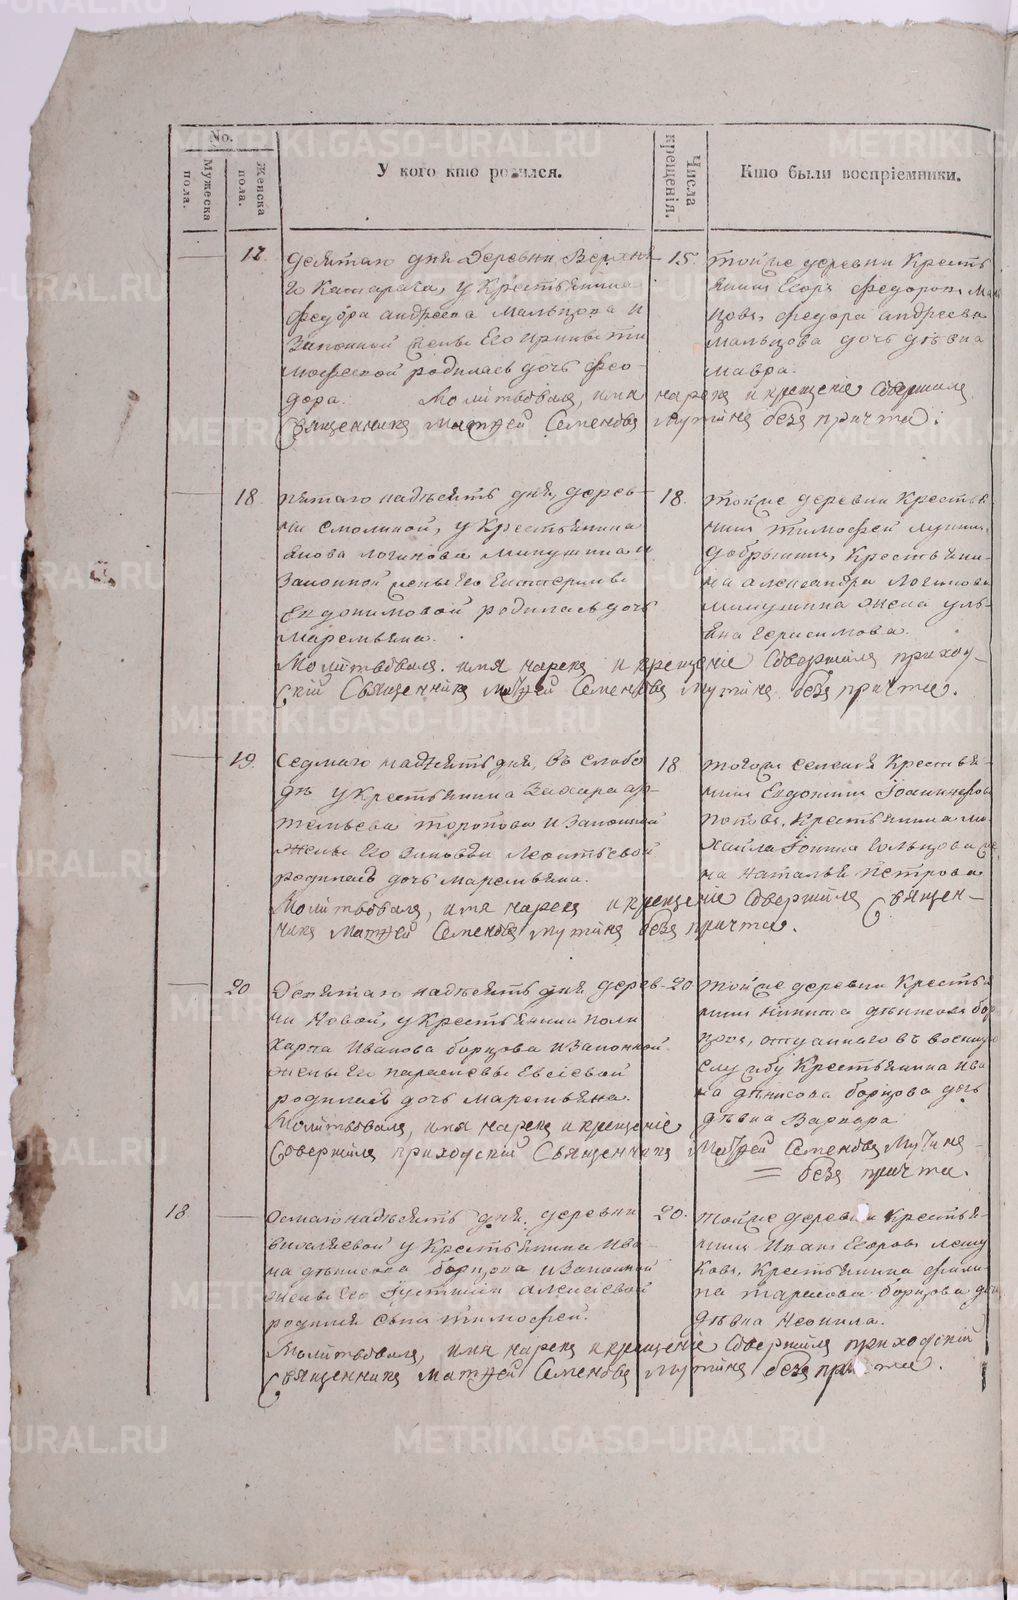 No.
Мужеска пола.
Женска пола.
У кого кто родился.
Числа крещенія.
Кто были воспріемники.
17. десятаго дня Деревни Верхня
го Катарача, у Крестьянина
федора андреева Мальцова и
Законной жены Его
родилась дочь фео-
дора. Молитвовалъ, имя нарекъ и крещеніе совершилъ
Священникъ Матѳей Семеновъ Мутинъ безъ причта.
15. тойже деревни Кресть
янинъ Егоръ федоровъ Маль
цовъ, федора андреева
мальцова дочь дѣвка
мавра.
18. пятаго надѣсять дня, дерев-
ни Смолиной, у Крестьянина
якова логинова Микушина и
Законной жены Его Екатерины
Евдокимовой родилась дочь
Маремьяна.
Молитвовалъ. имя нарекъ и крещеніе совершилъ приход-
скій Священникъ Матѳей Семеновъ Мутинъ безъ причта.
18. тойже деревни Крестья
нинъ тимофей
добрынинъ, Крестьяни-
на александра Логинова
микушина жена уль-
яна Герасимова.
19. Седмаго надѣсять дня, въ слобо
дѣ у Крестьянина Захара ар-
темьева торопова и Законной
жены Его Зиновьи Леонтьевой
родилась дочь Маремьяна.
Молитвовалъ, имя нарекъ и крещеніе совершилъ Священ-
никъ Матѳей Семеновъ Мутинъ безъ причта.
18 тогожъ селенія Крестья-
нинъ Евдокимъ
поповъ, Крестьянина ми
хайла
на наталья петрова
20 Девятаго надѣсять дня дерев-
ни Новой, у Крестьянина поли
карпа Иванова борцова и Законной
жены Его параскевы Евсіевой
родилась дочь Маремьяна.
Молитвовалъ, имя нарекъ и крещеніе
Совершилъ приходскій Священникъ Матѳей Семеновъ Мутинъ
безъ причта.
20 тойже деревни Крестья
нинъ никита дѣнисовъ бор
цовъ, отданнаго въ военную
службу Крестьянина Ива
на дѣнисова борцова дочь
дѣвка Варвара
18 Осмаго надѣсять дня, деревни
у Крестьянина Ива-
на дѣнисова борцова и Законной
жены Его Густиніи алексіевой
родился сынъ тимофей.
Молитвовалъ, имя нарекъ и крещеніе совершилъ приходскій
Священникъ Матѳей Семеновъ Мутинъ безъ причта.
20. тойже деревни Крестья-
нинъ Иванъ Егоровъ
ковъ, Крестьянина фили
па тарасова борцова дочь
дѣвка Неонила.
METRIKI.GASO-URAL.RU